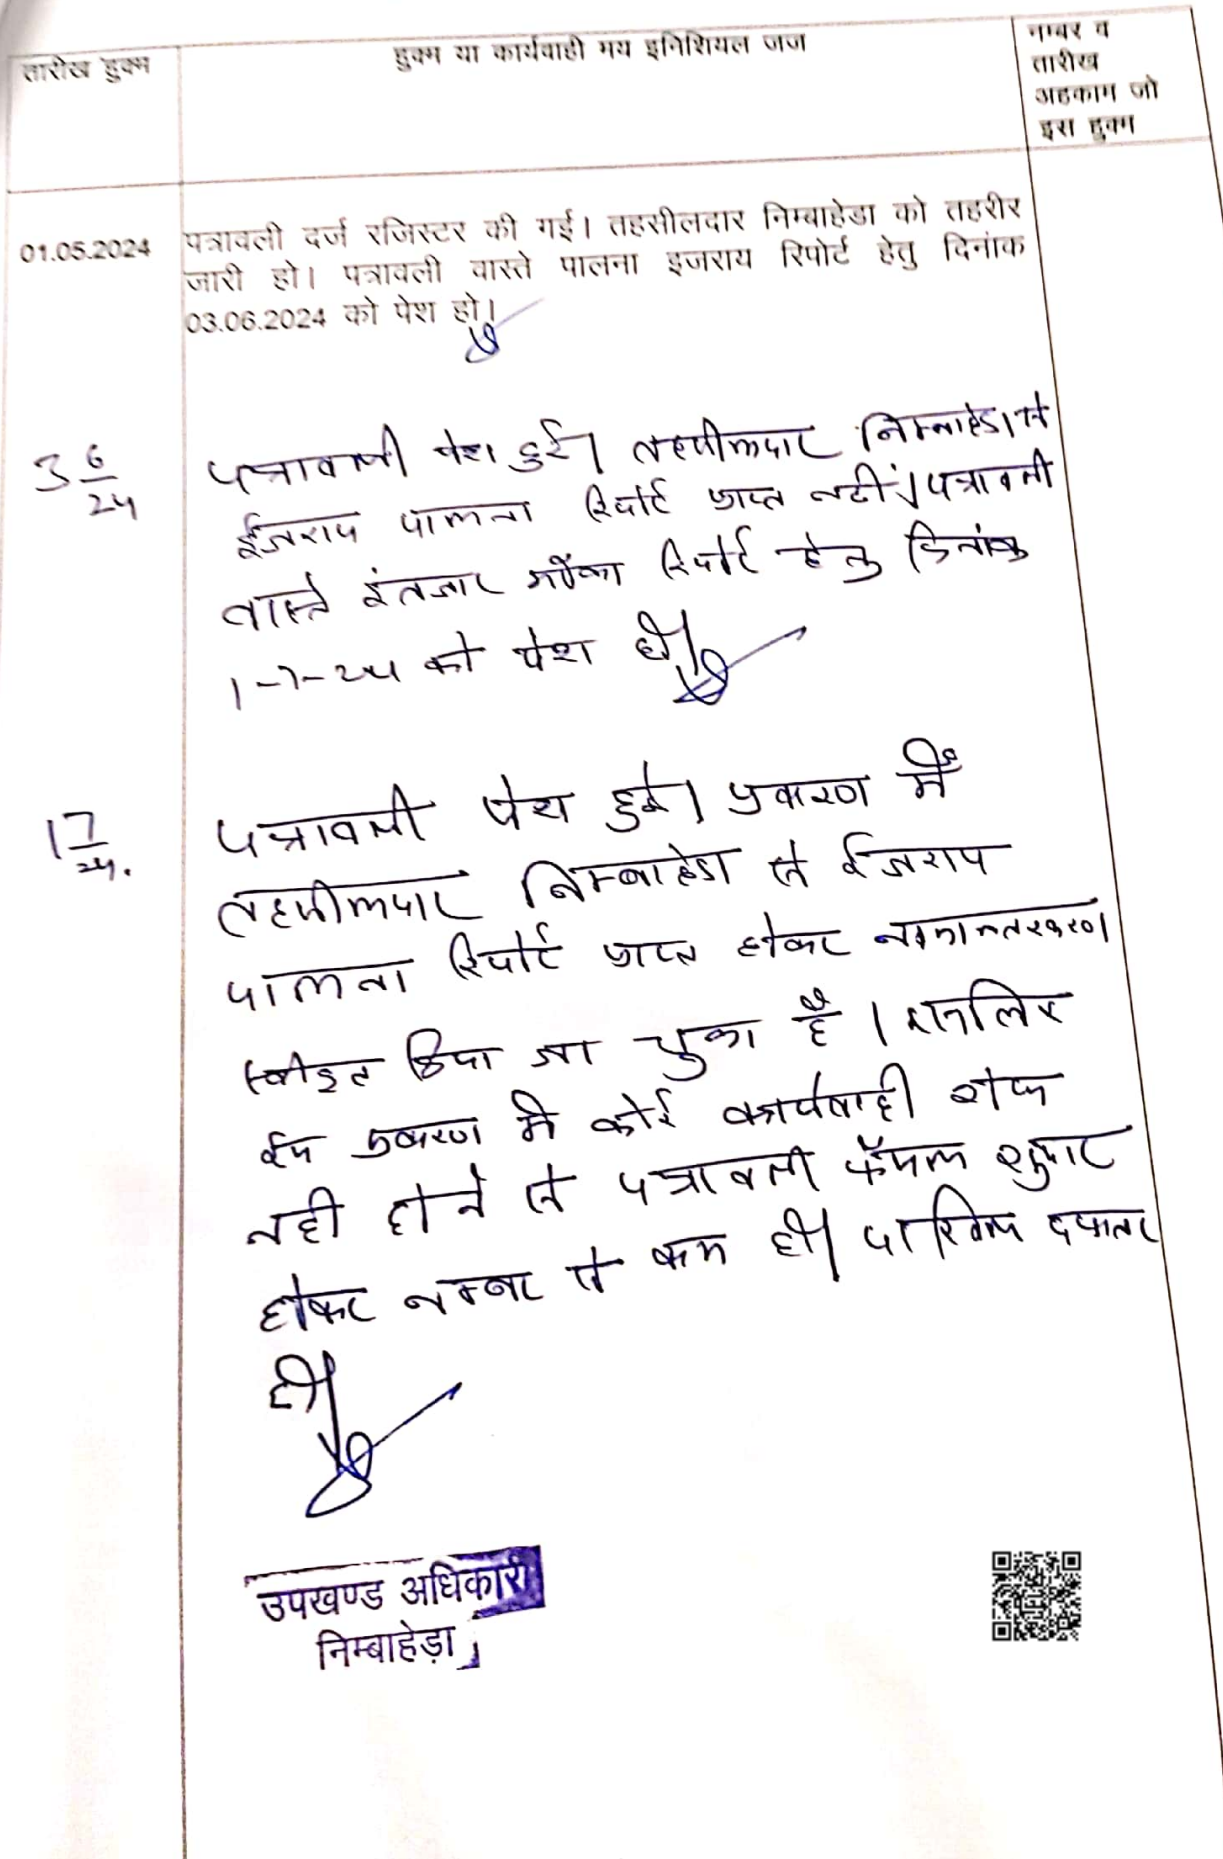 तारीख हुक्म
हुक्म या कार्यवाही मय इनिशियल जज
नम्बर व
तारीख
अहकाम जो
इस हुक्म
01.05.2024
पत्रावली दर्ज रजिस्टर की गई। तहसीलदार निम्बाहेडा को तहरीर
जारी हो। पत्रावली वास्ते पालना इजराय रिपोर्ट हेतु दिनांक
03.06.2024 को पेश हो।
3 6/24
पत्रावली पेश हुई। तहसीलदार निम्बाहेडा से
ईजराय पालना रिपोर्ट प्राप्त नहीं। पत्रावली
वास्ते इंतजार मौका रिपोर्ट हेतु दिनांक
1-7-24 को पेश हो।
1 7/24.
पत्रावली पेश हुई। प्रकरण में
तहसीलदार निम्बाहेडा से ईजराय
पालना रिपोर्ट प्राप्त होकर नामान्तरकरण
स्वीकृत किया जा चुका है। इसलिए
इस प्रकरण मे कोई कार्यवाही शेष
नही होने से पत्रावली फैसल शुमार
होकर नम्बर से कम हो। दाखिल दफ्तर
हो।
उपखण्ड अधिकारी
निम्बाहेड़ा